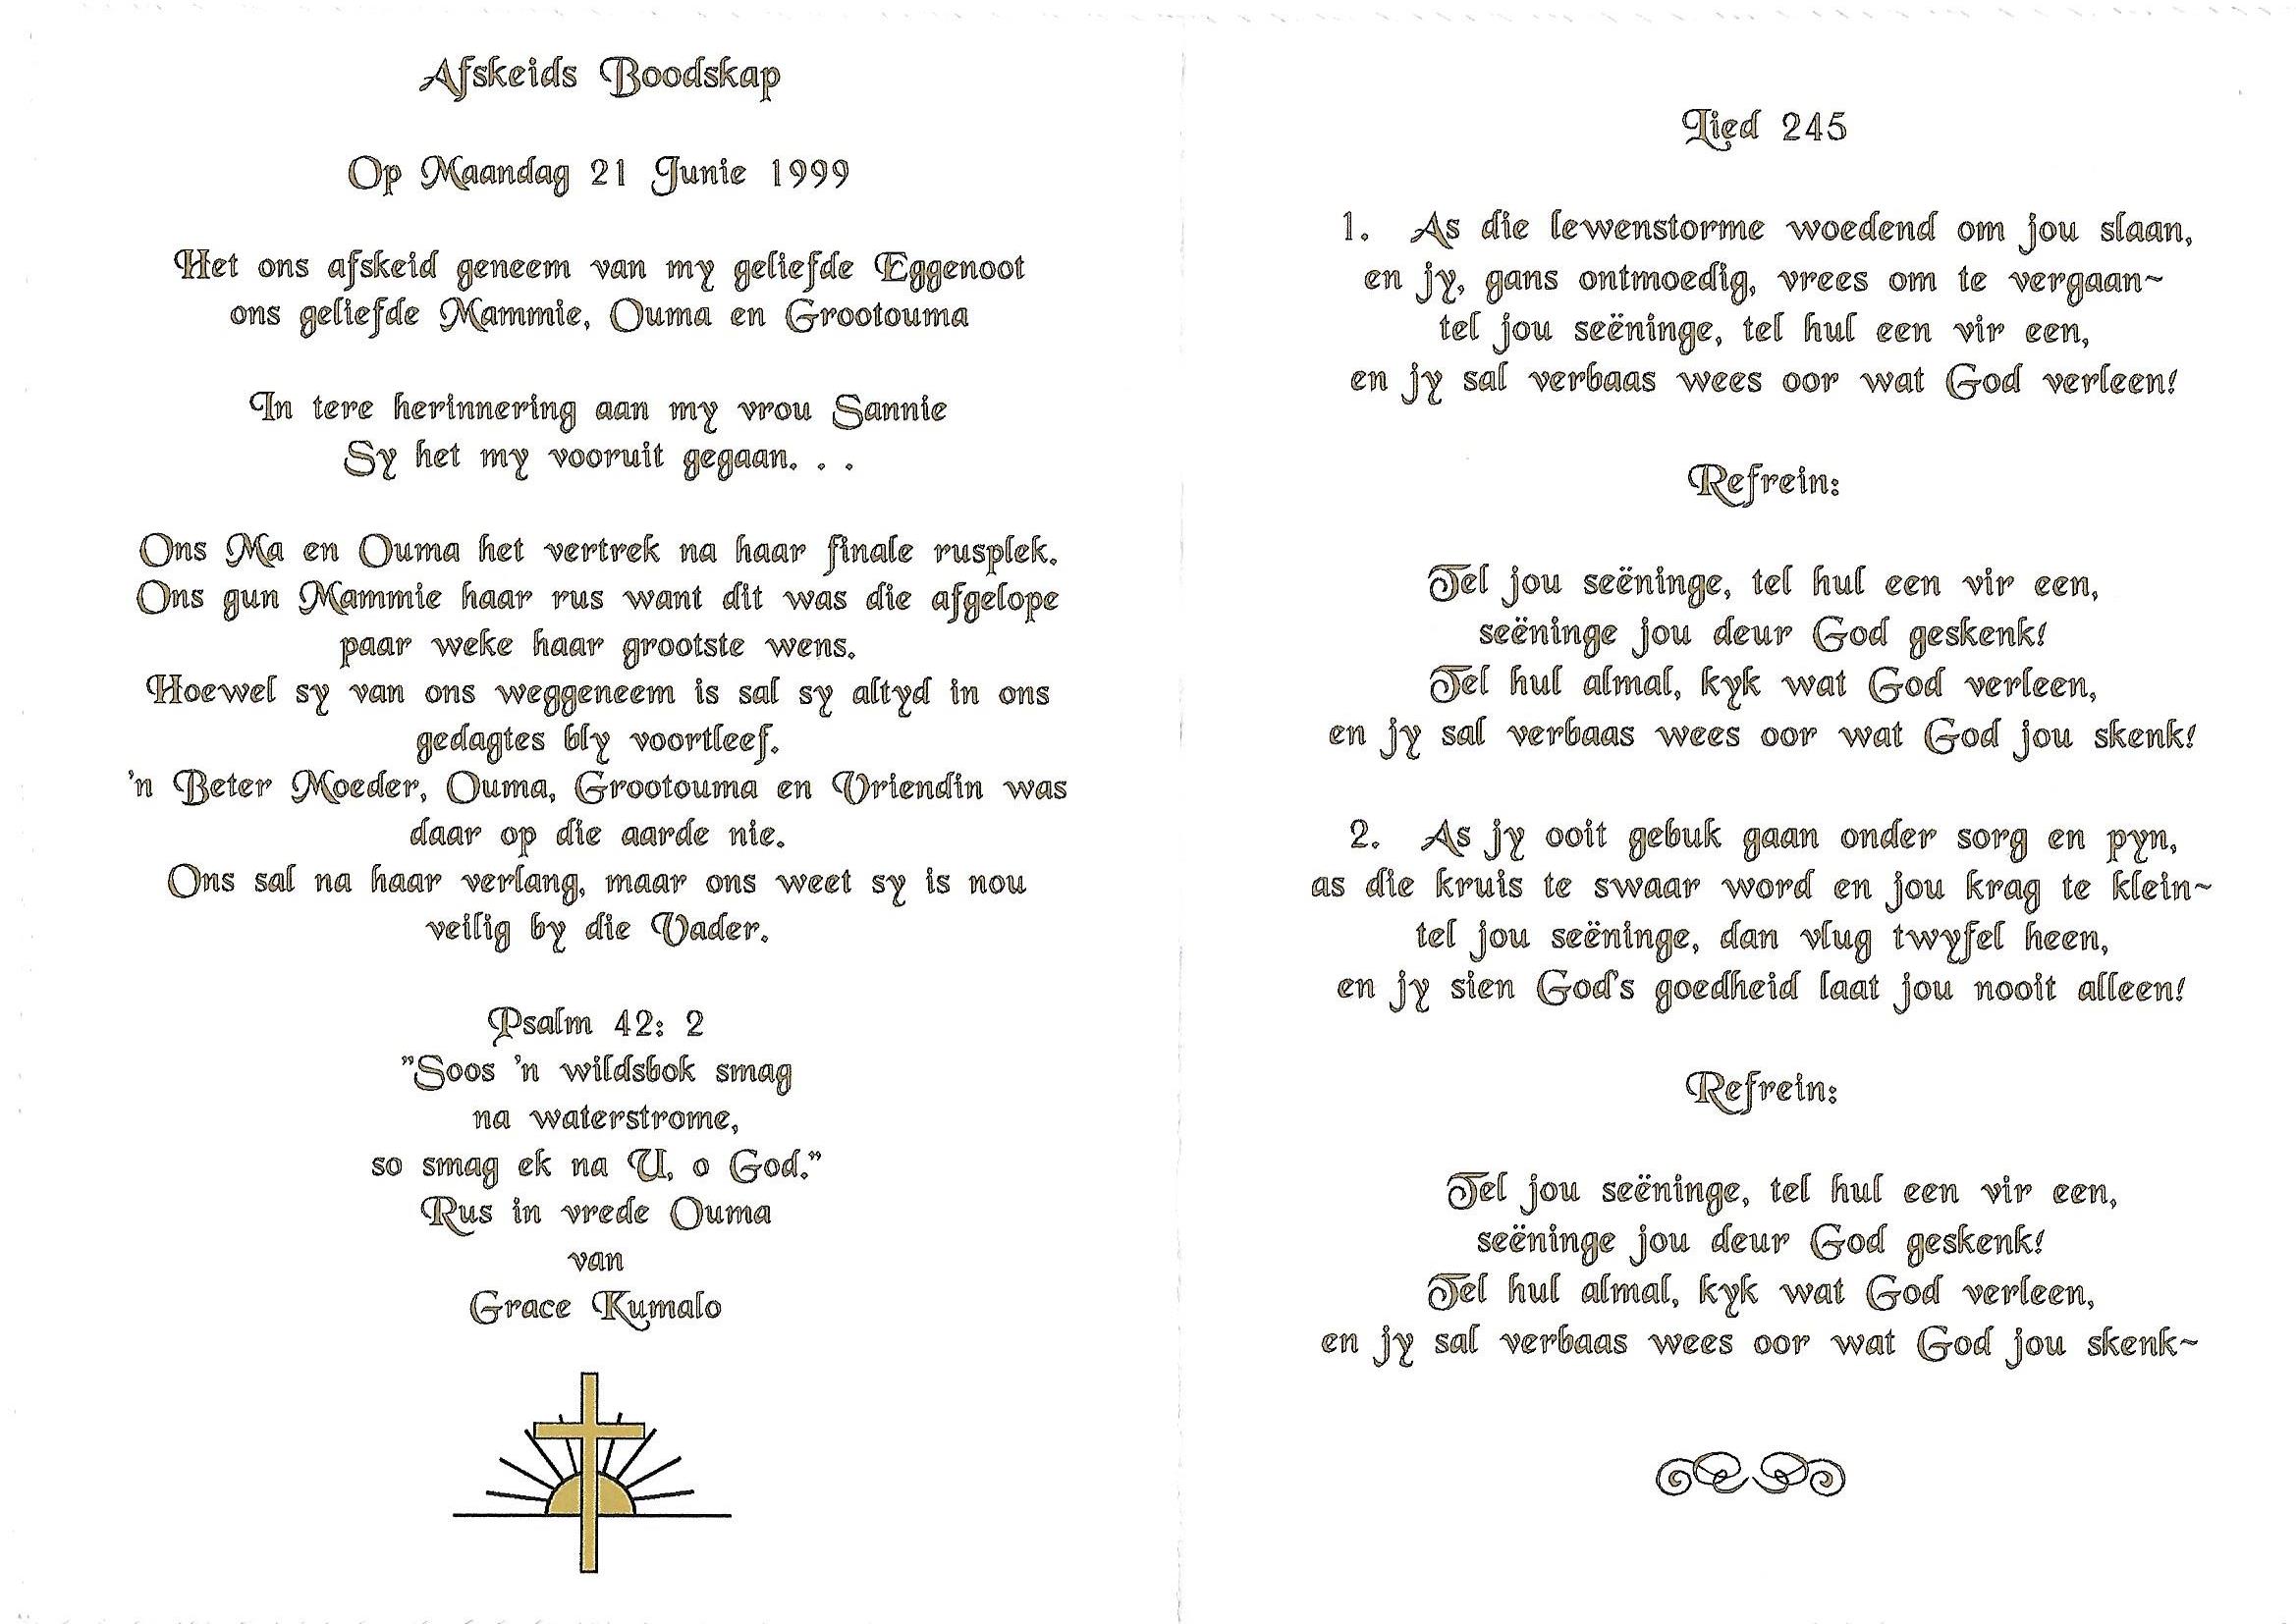 Afskeids Boodskap
Op Maandag 21 Junie 1999
Het ons afskeid geneem van my geliefde Eggenoot
ons geliefde Mammie, Ouma en Grootouma
In tere herinnering aan my vrou Sannie
Sy het my vooruit gegaan. . .
Ons Ma en Ouma het vertrek na haar finale rusplek.
Ons gun Mammie haar rus want dit was die afgelope
paar weke haar grootste wens.
Hoewel sy van ons weggeneem is sal sy altyd in ons
gedagtes bly voortleef.
'n Beter Moeder, Ouma, Grootouma en Vriendin was
daar op die aarde nie.
Ons sal na haar verlang, maar ons weet sy is nou
veilig by die Vader.
Psalm 42: 2
"Soos 'n wildsbok smag
na waterstrome,
so smag ek na U, o God."
Rus in vrede Ouma
van
Grace Kumalo
Lied 245
1. As die lewenstorme woedend om jou slaan,
en jy, gans ontmoedig, vrees om te vergaan~
tel jou seëninge, tel hul een vir een,
en jy sal verbaas wees oor wat God verleen!
Refrein:
Tel jou seëninge, tel hul een vir een,
seëninge jou deur God geskenk!
Tel hul almal, kyk wat God verleen,
en jy sal verbaas wees oor wat God jou skenk!
2. As jy ooit gebuk gaan onder sorg en pyn,
as die kruis te swaar word en jou krag te klein~
tel jou seëninge, dan vlug twyfel heen,
en jy sien God's goedheid laat jou nooit alleen!
Refrein:
Tel jou seëninge, tel hul een vir een,
seëninge jou deur God geskenk!
Tel hul almal, kyk wat God verleen,
en jy sal verbaas wees oor wat God jou skenk~